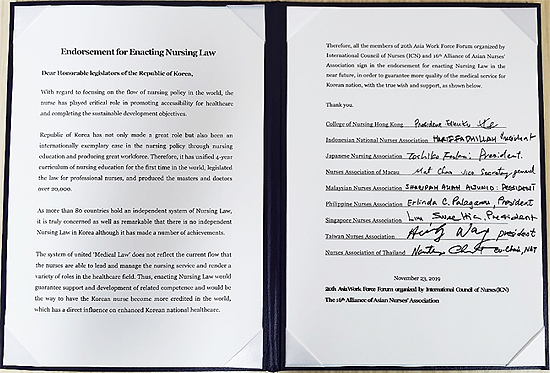 Endorsement for Enacting Nursing Law
Dear Honorable legislators of the Republic of Korea,
With regard to focusing on the flow of nursing policy in the world, the
nurse has played critical role in promoting accessibility for healthcare
and completing the sustainable development objectives.
Republic of Korea has not only made a great role but also been an
internationally exemplary ease in the nursing policy through nursing
education and producing great workforce. Therefore, it has unified 4-year
curriculum of nursing education for the first time in the world, legislated
the law for professional nurses, and produced the masters and doctors
over 20,000.
As more than 80 countries hold an independent system of Nursing Law,
it is truly concerned as well as remarkable that there is no independent
Nursing Law in Korea although it has made a number of achievements.
The system of united 'Medical Law' does not reflect the current flow that
the nurses are able to lead and manage the nursing service and render a
variety of roles in the healthcare field. Thus, enacting Nursing Law would
guarantee support and development of related competence and would be
the way to have the Korean nurse become more credited in the world,
which has a direct influence on enhanced Korean national healthcare.
Therefore, all the members of 20th Asia Work Force Forum organized by
International Council of Nurses (ICN) and 16th Alliance of Asian Nurses'
Association sign in the endorsement for enacting Nursing Law in the
near future, in order to guarantee more quality of the medical service for
Korean nation, with the true wish and support, as shown below.
Thank you.
College of Nursing Hong Kong President
Indonesian National Nurses Association HARIF FADHILLAH President
Japanese Nursing Association Toshiko President.
Nurses Association of Macau Chan vice Secretary general
Malaysian Nurses Association PRESIDENT
Philippine Nurses Association Erlinda C. Palaganas President
Singapore Nurses Association Lim Swee Hia, President
Taiwan Nurses Association Wang president
Nurses Association of Thailand
November 23, 2019
20th Asia Work Force Forum organized by International Council of Nurses(ICN)
The 16th Alliance of Asian Nurses' Association